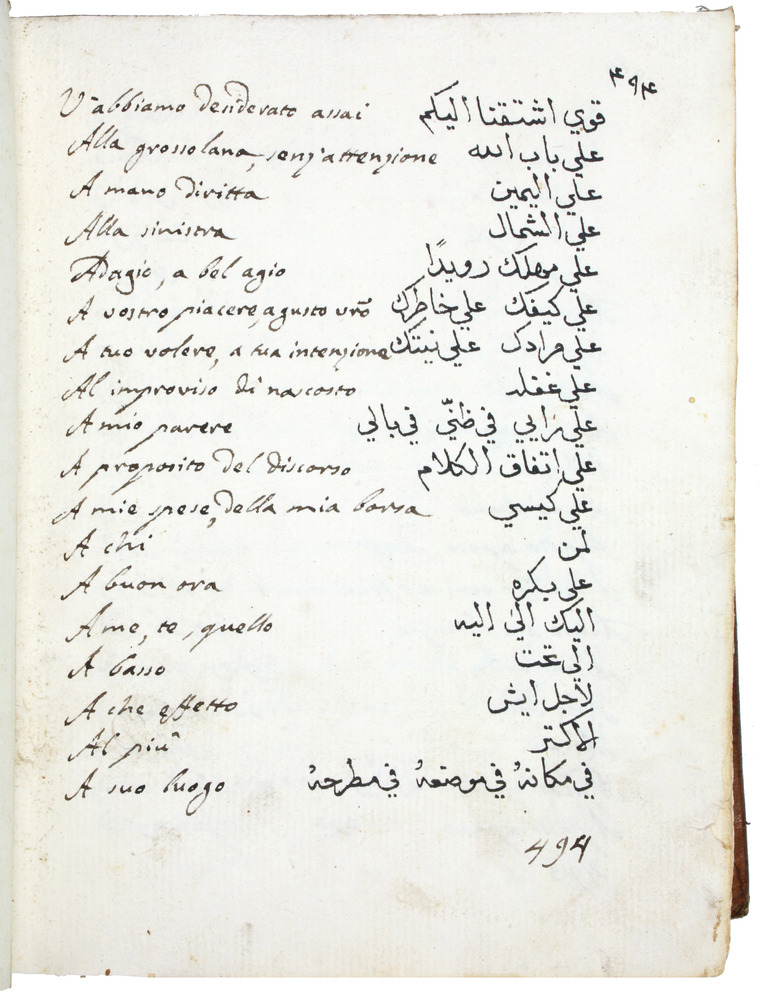 ٤٩٤
V'abbiamo desiderato assai قوي اشتقنا اليكم
Alla grossolana, senz'attenzione علي باب الله
A mano diritta علي اليمين
Alla sinistra علي الشمال
Adagio, a bel agio علي مهلك رويدًا
A vostro piacere, a gusto vrō علي كيفك علي خاطرك
A tuo volere, a tua intenzione علي مرادك علي نيتك
Al improviso di nascosto علي غفله
A mio parere علي رايي في ظنّي في بالي
A proposito del discorso علي اتفاق الكلام
A mie spese, della mia borsa علي كيسي
A chi لمن
A buon ora علي بكره
A me, te, quello اليك اليّ اليه
A basso الي تحت
A che effetto لاجل ايش
Al più الاكتر
A suo luogo في مكانهُ في موضعهُ في مطرحهُ
494